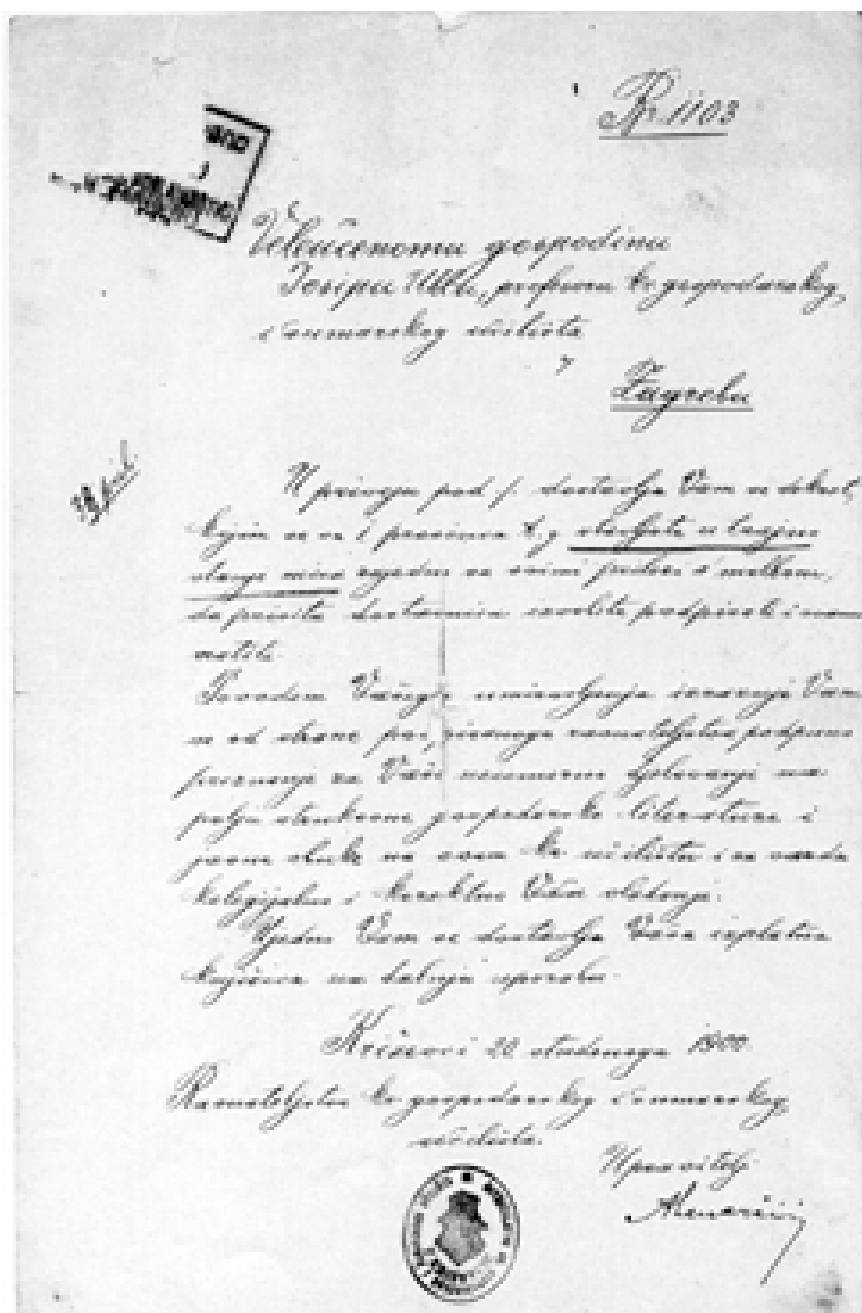 Br. 1103
Veleučenomu gospodinu
Josipu Ubl, profesoru kr. gospodarskog
i šumarskog učilišta
u
Zagrebu
U privoju pod ·/. dostavlja Vam se dekret,
kojim se sa 1 prosinca t. g. stavljate u trajno
stanje mira zajedno sa svimi prilozi s'molbom,
da priveta dostavnicu izvolite podpisati i nam
vratiti.
Povodom Vašega umirovljenja izrazuje Vam
se od strane podpisanoga ravnateljstva podpuno
priznanje za Vaše neumorno djelovanje na
polju strukovne gospodarske literature i
javne obuke na ovom kr. učilištu i za vazda
kolegijalno i korektno Vaše vladanje.
Ujedno Vam se dostavlja Vaša izplatna
knjižica na dalnju uporabu.
Križevci 20 studenoga 1900.
Ravnateljstvo kr. gospodarskog i šumarskog
učilišta.
Upravitelj